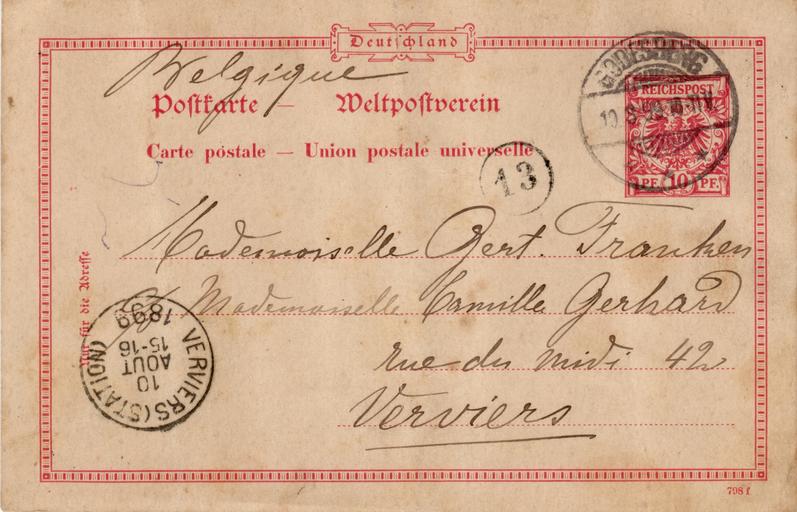 Deutschland
Belgique
Postkarte — Weltpostverein
Carte postale — Union postale universelle
GODESBERG
REICHSPOST
PF. 10 PF.
13
Nur für die Adresse
Mademoiselle Gert. Franken
c/ Mademoiselle Camille Gerhard
rue du midi 42
Verviers
VERVIERS (STATION)
10
AOUT
15-16
1899
798 f